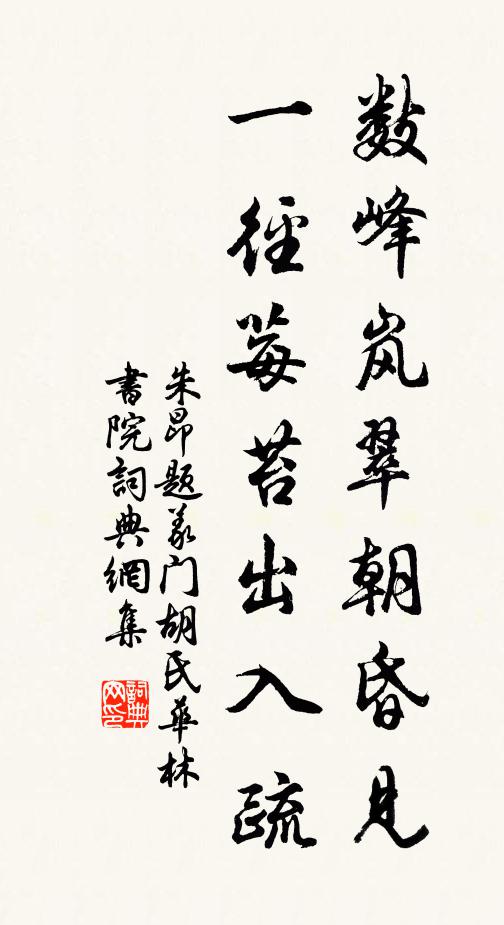 数峰岚翠朝昏見
一徑莓苔出入疏
朱昂题義门胡氏華林
書院詞典網集
詞典网印